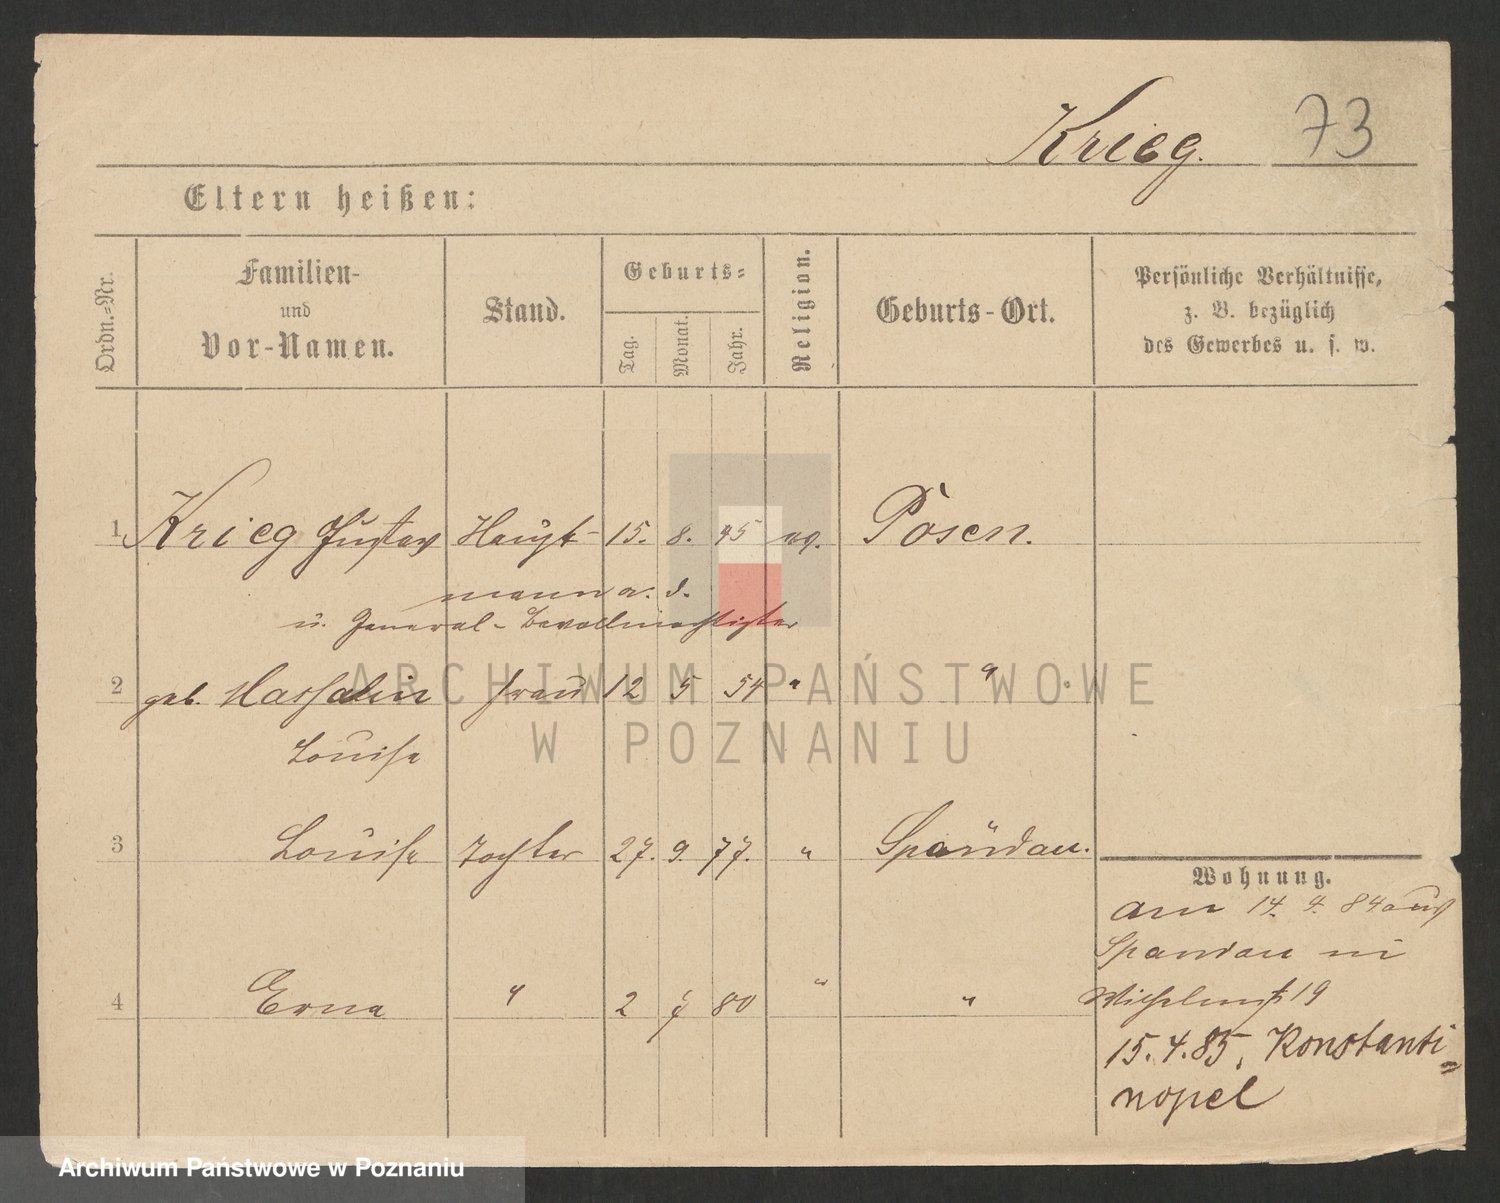 Krieg. 73
Eltern heißen:
Ordn.-Nr.
Familien-
und
Vor-Namen.
Stand.
Geburts-
Tag.
Monat.
Jahr.
Religion.
Geburts-Ort.
Persönliche Verhältnisse,
z. B. bezüglich
des Gewerbes u. s. w.
1 Krieg Gustav Haupt- 15. 8. 45 ev. Posen.
mann a. d.
u. General-Bevollmächtigter
2 geb. Frau 12 5 54 " "
Louise
3 Louise Tochter 27. 9. 77. " Spandau.
4 Erna " 2 7 80 " "
Wohnung.
am 14. 4. 84 aus
Spandau in
Wilhelmst 19
15. 4. 85, Konstanti-
nopel
ARCHIWUM PAŃSTWOWE
W POZNANIU
Archiwum Państwowe w Poznaniu